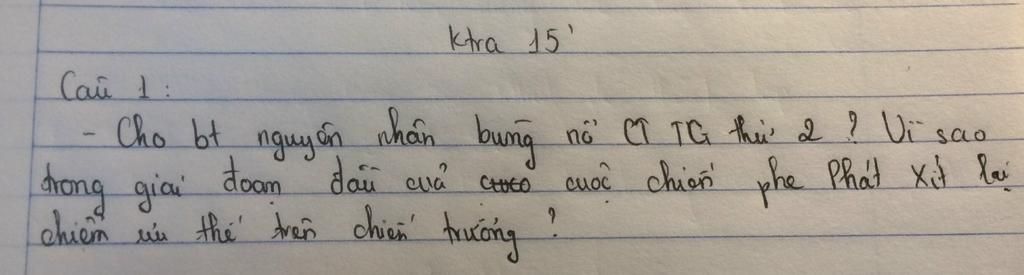 Ktra 15'
Câu 1:
- Cho bt nguyên nhân bùng nổ CT TG thứ 2 ? Vì sao
trong giai đoạn đầu của cuộc chiến phe Phát Xít lại
chiếm ưu thế trên chiến trường ?